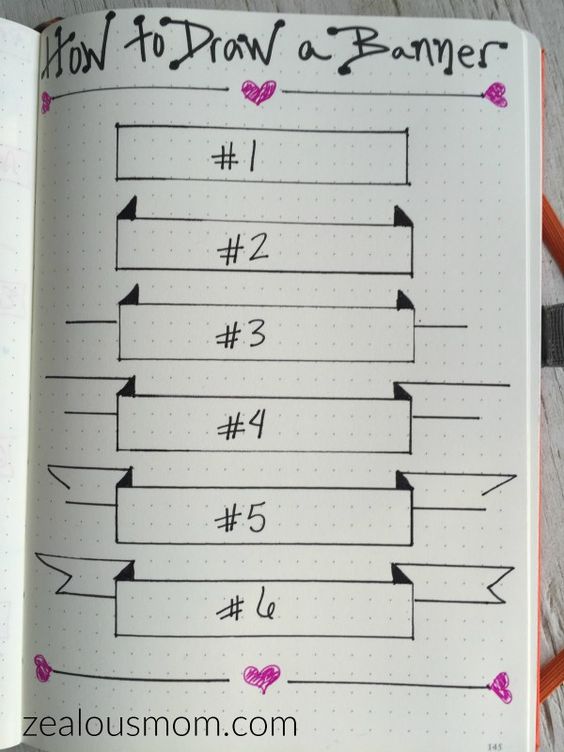 How to Draw a Banner
#1
#2
#3
#4
#5
#6
zealousmom.com
145